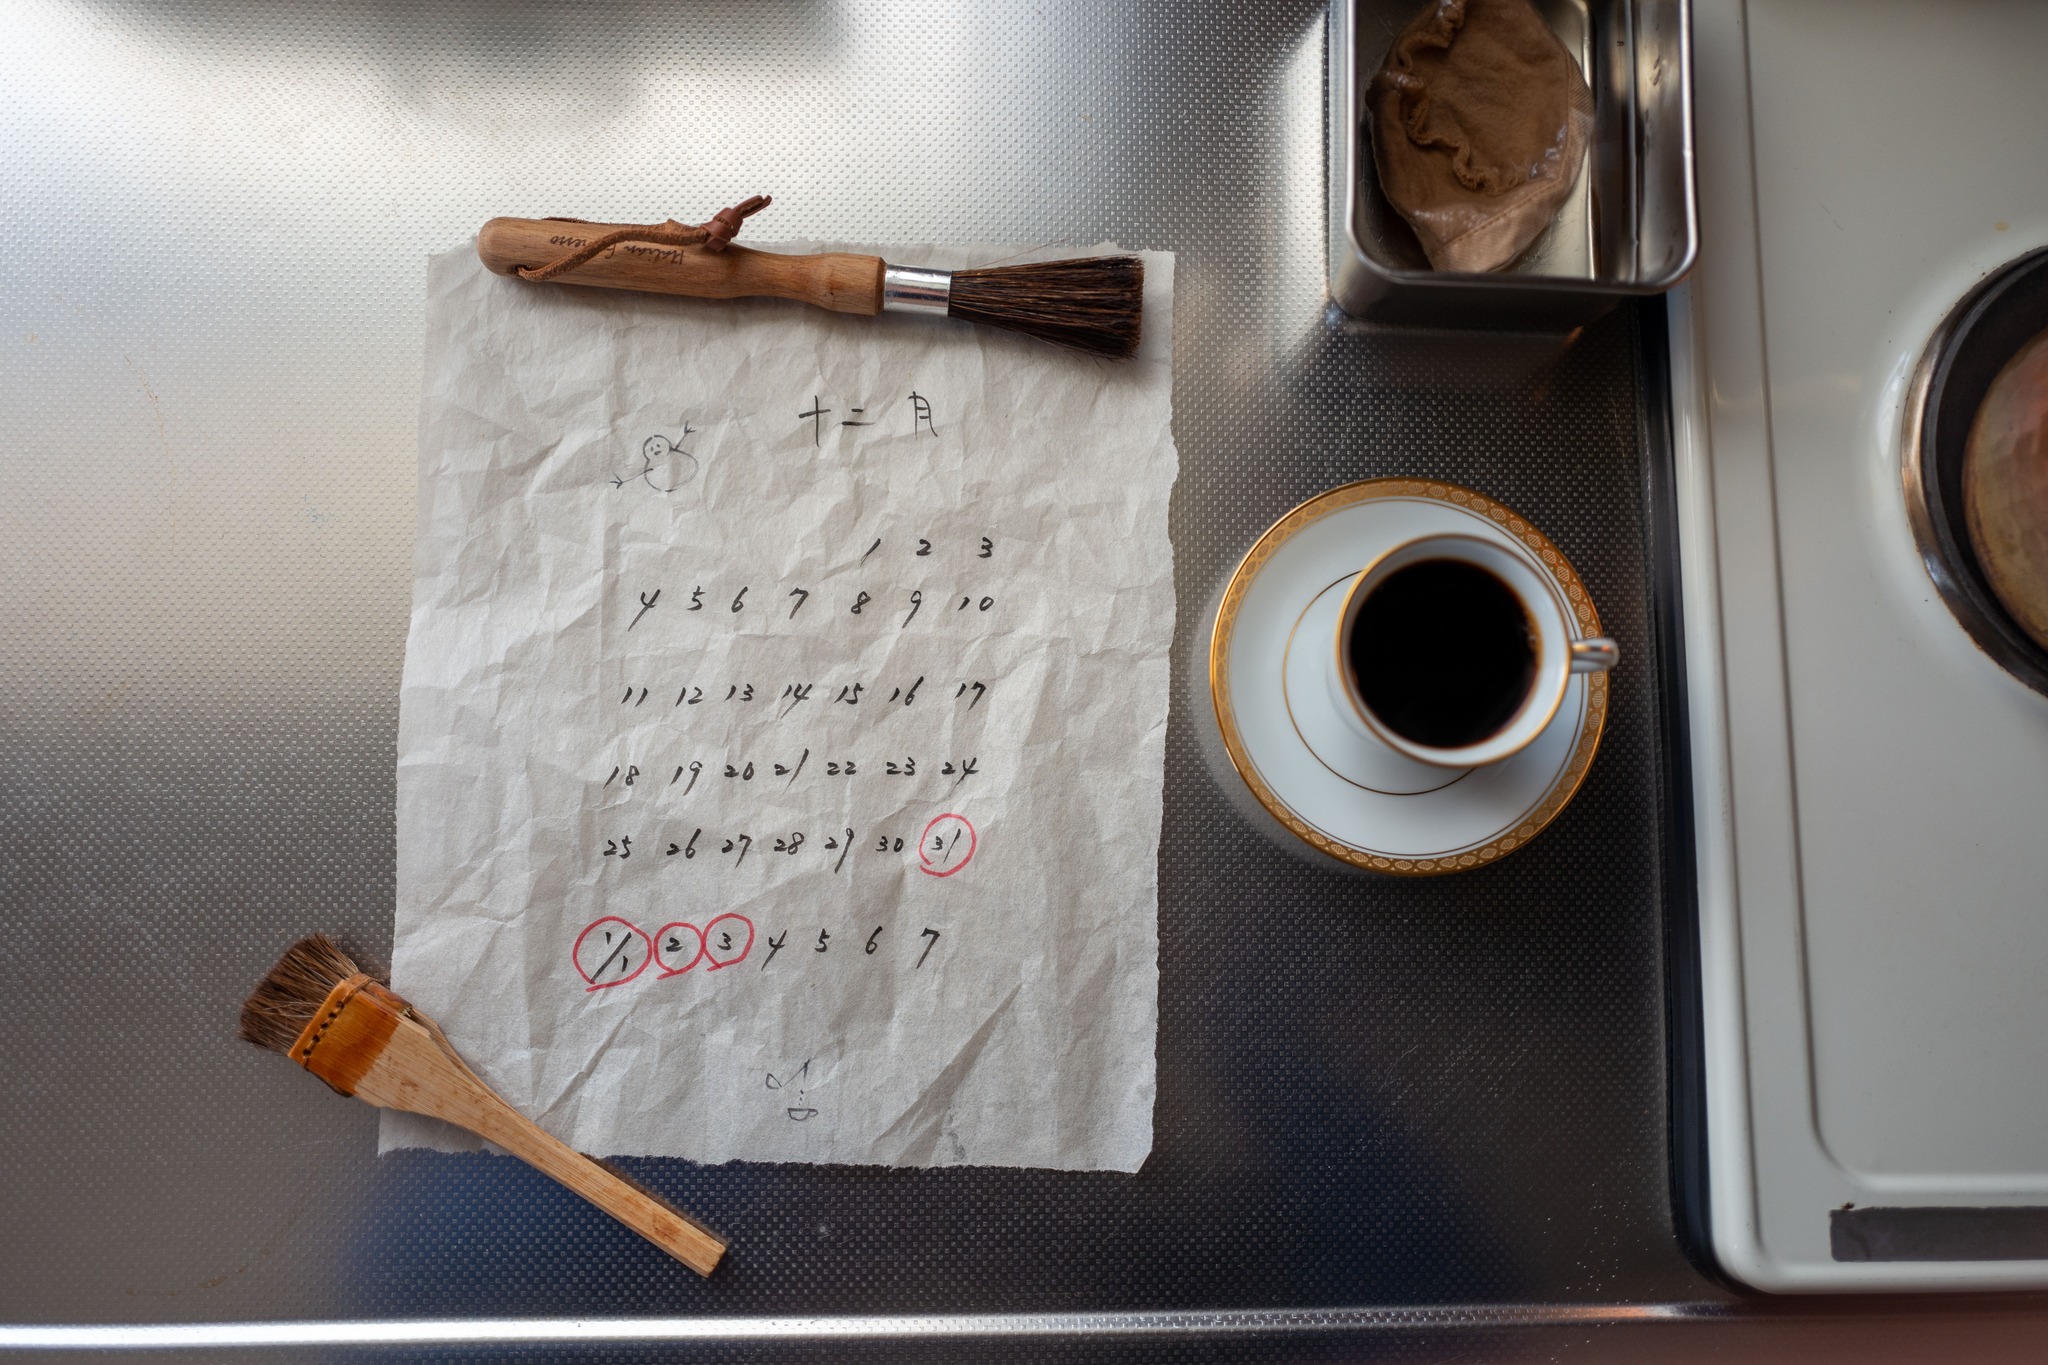 Italian Espresso
十二月
1 2 3
4 5 6 7 8 9 10
11 12 13 14 15 16 17
18 19 20 21 22 23 24
25 26 27 28 29 30 31
1/1 2 3 4 5 6 7